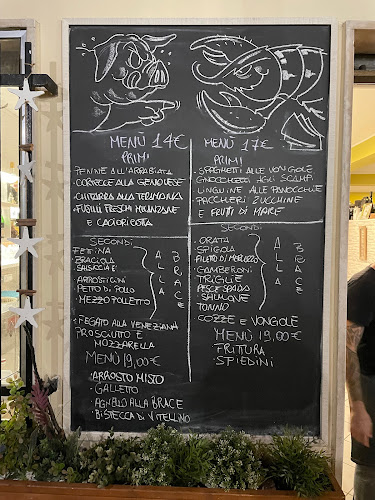 MENÙ 14€
PRIMI
PENNE ALL'ARRABIATA
CORTECCE ALLA GENOVESE
CHITARRA ALLA TERAMANA
FUSILLI FRESCHI MELANZANE
E CACIORICOTTA
SECONDI
FETTINA
BRACIOLA
SALSICCIA E
ARROSTICINI
PETTO DI POLLO
MEZZO POLLETTO
ALLA BRACE
FEGATO ALLA VENEZIANA
PROSCIUTTO E
MOZZARELLA
MENÙ 19,00€
ARROSTO MISTO
GALLETTO
AGNELLO ALLA BRACE
BISTECCA DI VITELLINO
MENÙ 17€
PRIMI
SPAGHETTI ALLE VONGOLE
GNOCCHETTI AGLI SCAMPI
LINGUINE ALLE PANOCCHIE
PACCHERI ZUCCHINE
E FRUTTI DI MARE
SECONDI
ORATA
SPIGOLA
FILETTO DI MERLUZZO
GAMBERONI
TRIGLIE
PESCE SPADA
SALMONE
TONNO
ALLA BRACE
COZZE E VONGOLE
MENÙ 19,00€
FRITTURA
SPIEDINI